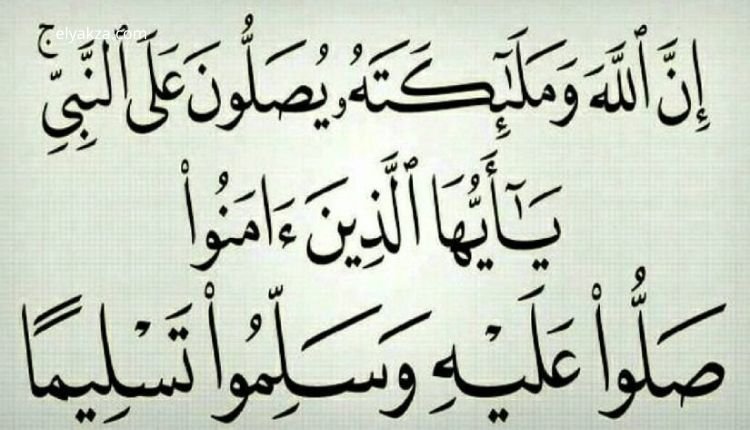 elyakza.com
إِنَّ ٱللَّهَ وَمَلَٰٓئِكَتَهُۥ يُصَلُّونَ عَلَى ٱلنَّبِيِّۚ
يَٰٓأَيُّهَا ٱلَّذِينَ ءَامَنُوا۟
صَلُّوا۟ عَلَيْهِ وَسَلِّمُوا۟ تَسْلِيمًا